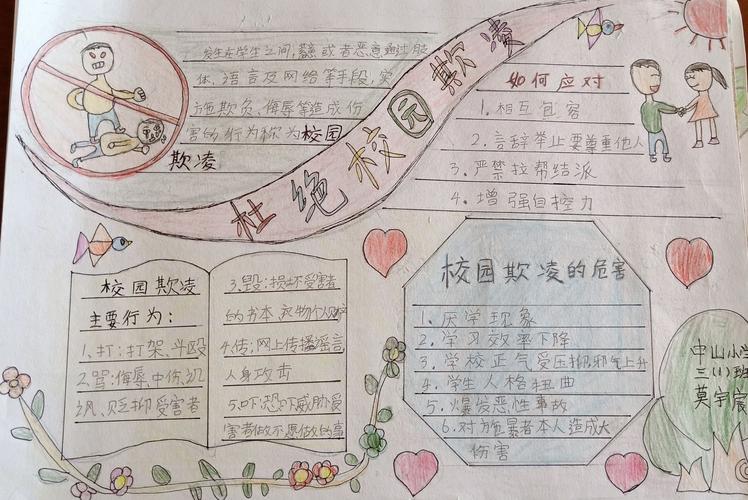 杜绝校园欺凌
发生在学生之间,蓄意或者恶意通过肢
体、语言及网络等手段,实
施欺负、侮辱等造成伤
害的行为称为校园
欺凌
如何应对
1.相互包容
2.言辞举止要尊重他人
3.严禁拉帮结派
4.增强自控力
校园欺凌
主要行为:
1、打:打架、斗殴
2.骂:侮辱、中伤、讥
讽、贬抑受害者
3.毁:损坏受害者
的书本、衣物个人财产
4.传:网上传播谣言
人身攻击
5.吓:恐吓威胁受
害者做不愿做的事
校园欺凌的危害
1.厌学现象
2.学习效率下降
3.学校正气受压抑,邪气上升
4.学生人格扭曲
5.爆发恶性事故
6.对施暴者本人造成大
伤害
中山小学
三(1)班
莫宇宸